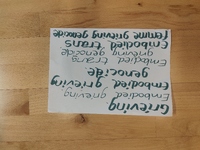 Grieving
Embodied grieving
Embodied grieving
genocide
Embodied trans
grieving genocide
Embodied trans
femme grieving genocide